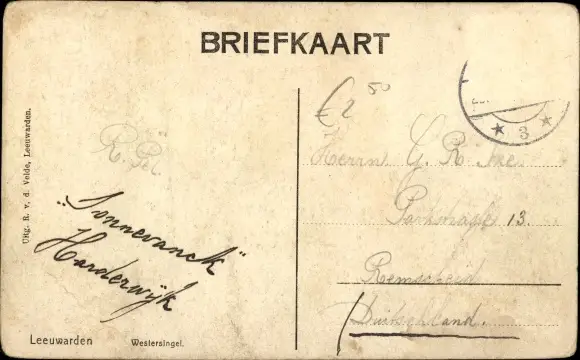 BRIEFKAART
Uitg. R. v. d. Velde, Leeuwarden.
"Sonnevanck"
Harderwijk
Leeuwarden Westersingel.
€ 2 50
3
Herrn G. R
13.
Remscheid
Duitschland.